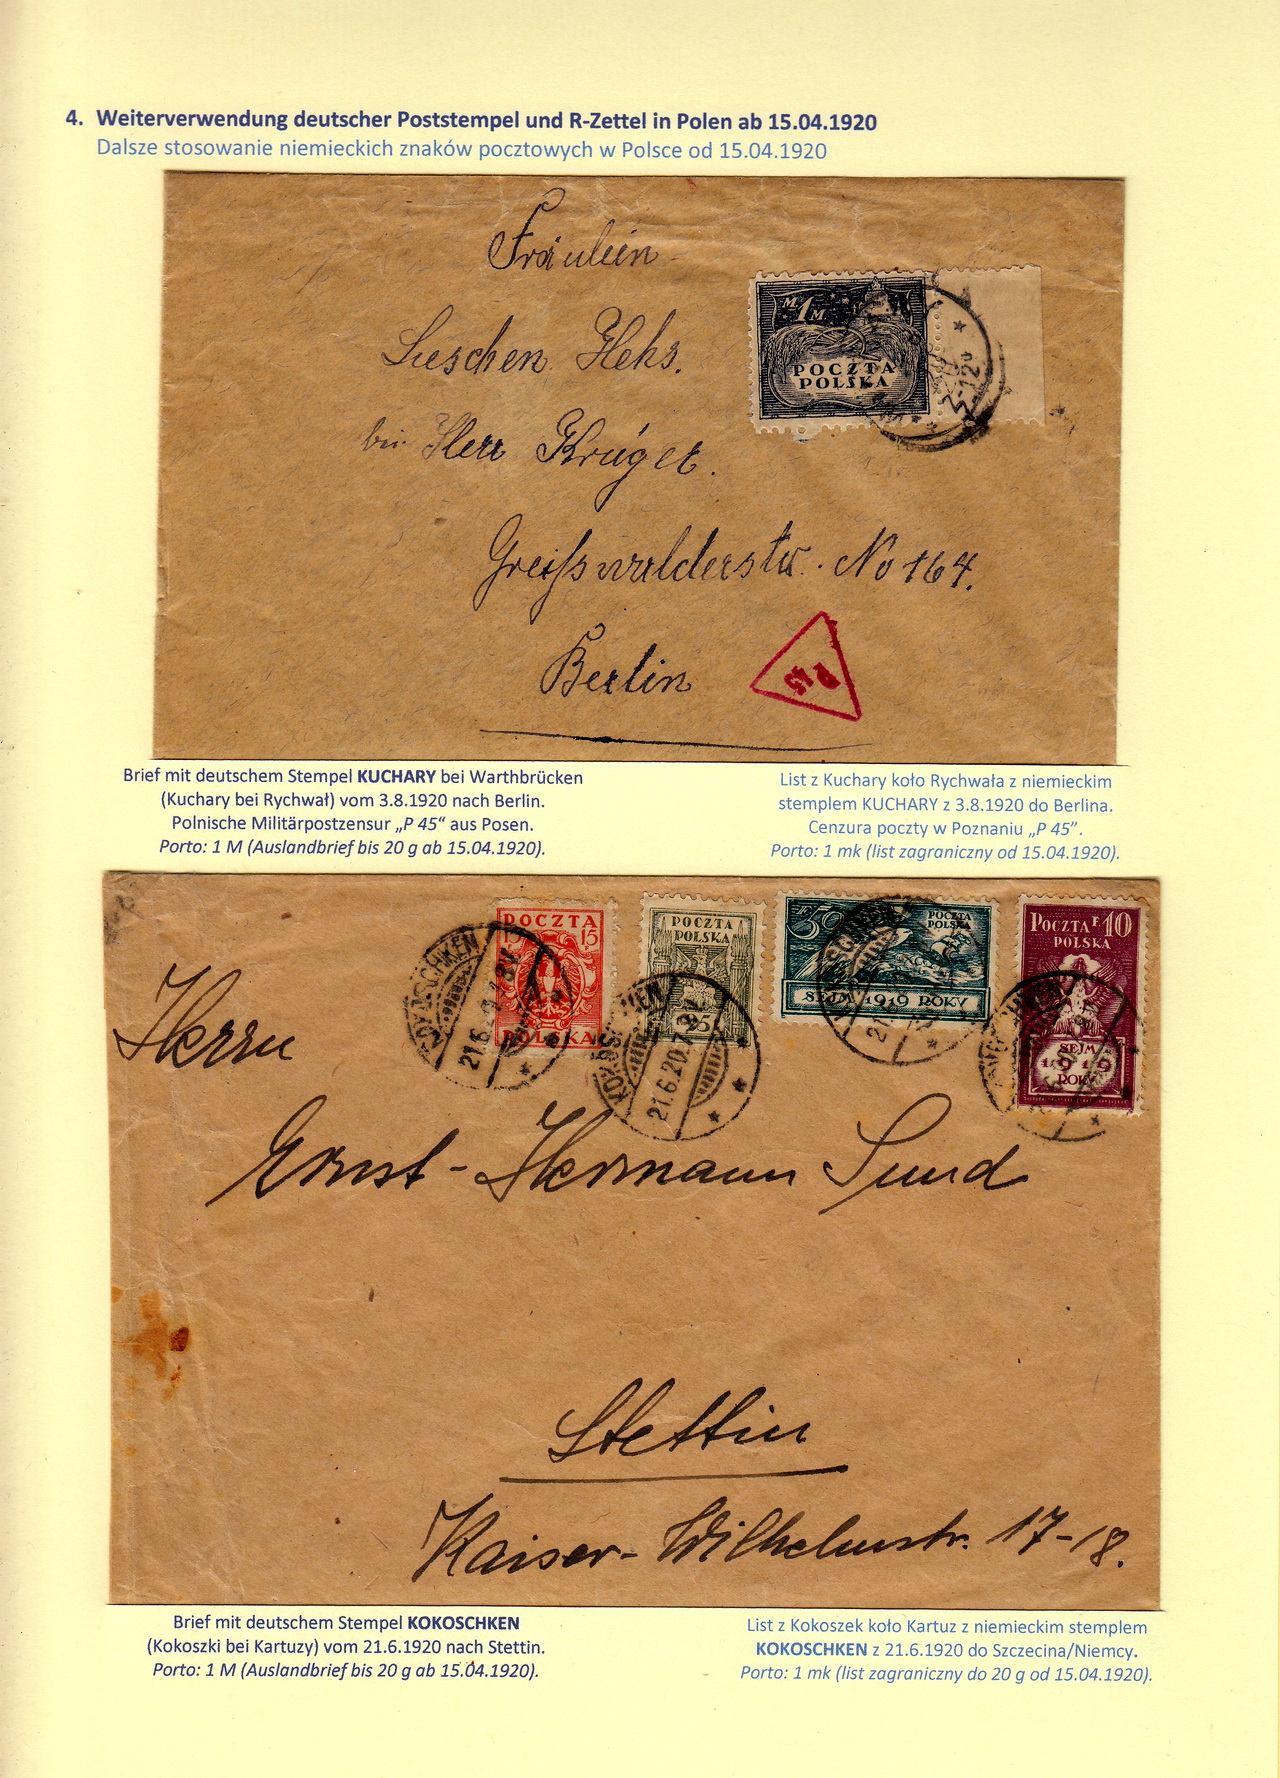 4. Weiterverwendung deutscher Poststempel und R-Zettel in Polen ab 15.04.1920
Dalsze stosowanie niemieckich znaków pocztowych w Polsce od 15.04.1920
Fräulein
M. 1 M
POCZTA
POLSKA
Lieschen Heks.
bei Herr Krüger.
Greifswalderstr. No 164.
P 45
Berlin
Brief mit deutschem Stempel KUCHARY bei Warthbrücken
(Kuchary bei Rychwał) vom 3.8.1920 nach Berlin.
Polnische Militärpostzensur „P 45“ aus Posen.
Porto: 1 M (Auslandbrief bis 20 g ab 15.04.1920).
List z Kuchary koło Rychwała z niemieckim
stemplem KUCHARY z 3.8.1920 do Berlina.
Cenzura poczty w Poznaniu „P 45”.
Porto: 1 mk (list zagraniczny od 15.04.1920).
POCZTA
15 15
POLSKA
POCZTA
POLSKA
25
F 50
POCZTA
POLSKA
SEJM 1919 ROKU
POCZTA F 10
POLSKA
SEJM
1919
ROKU
KOKOSCHKEN
21.6.20.7-8V
Herrn
Ernst-Hermann Sund
Stettin
Kaiser-Wilhelmstr. 17-18.
Brief mit deutschem Stempel KOKOSCHKEN
(Kokoszki bei Kartuzy) vom 21.6.1920 nach Stettin.
Porto: 1 M (Auslandbrief bis 20 g ab 15.04.1920).
List z Kokoszek koło Kartuz z niemieckim stemplem
KOKOSCHKEN z 21.6.1920 do Szczecina/Niemcy.
Porto: 1 mk (list zagraniczny do 20 g od 15.04.1920).